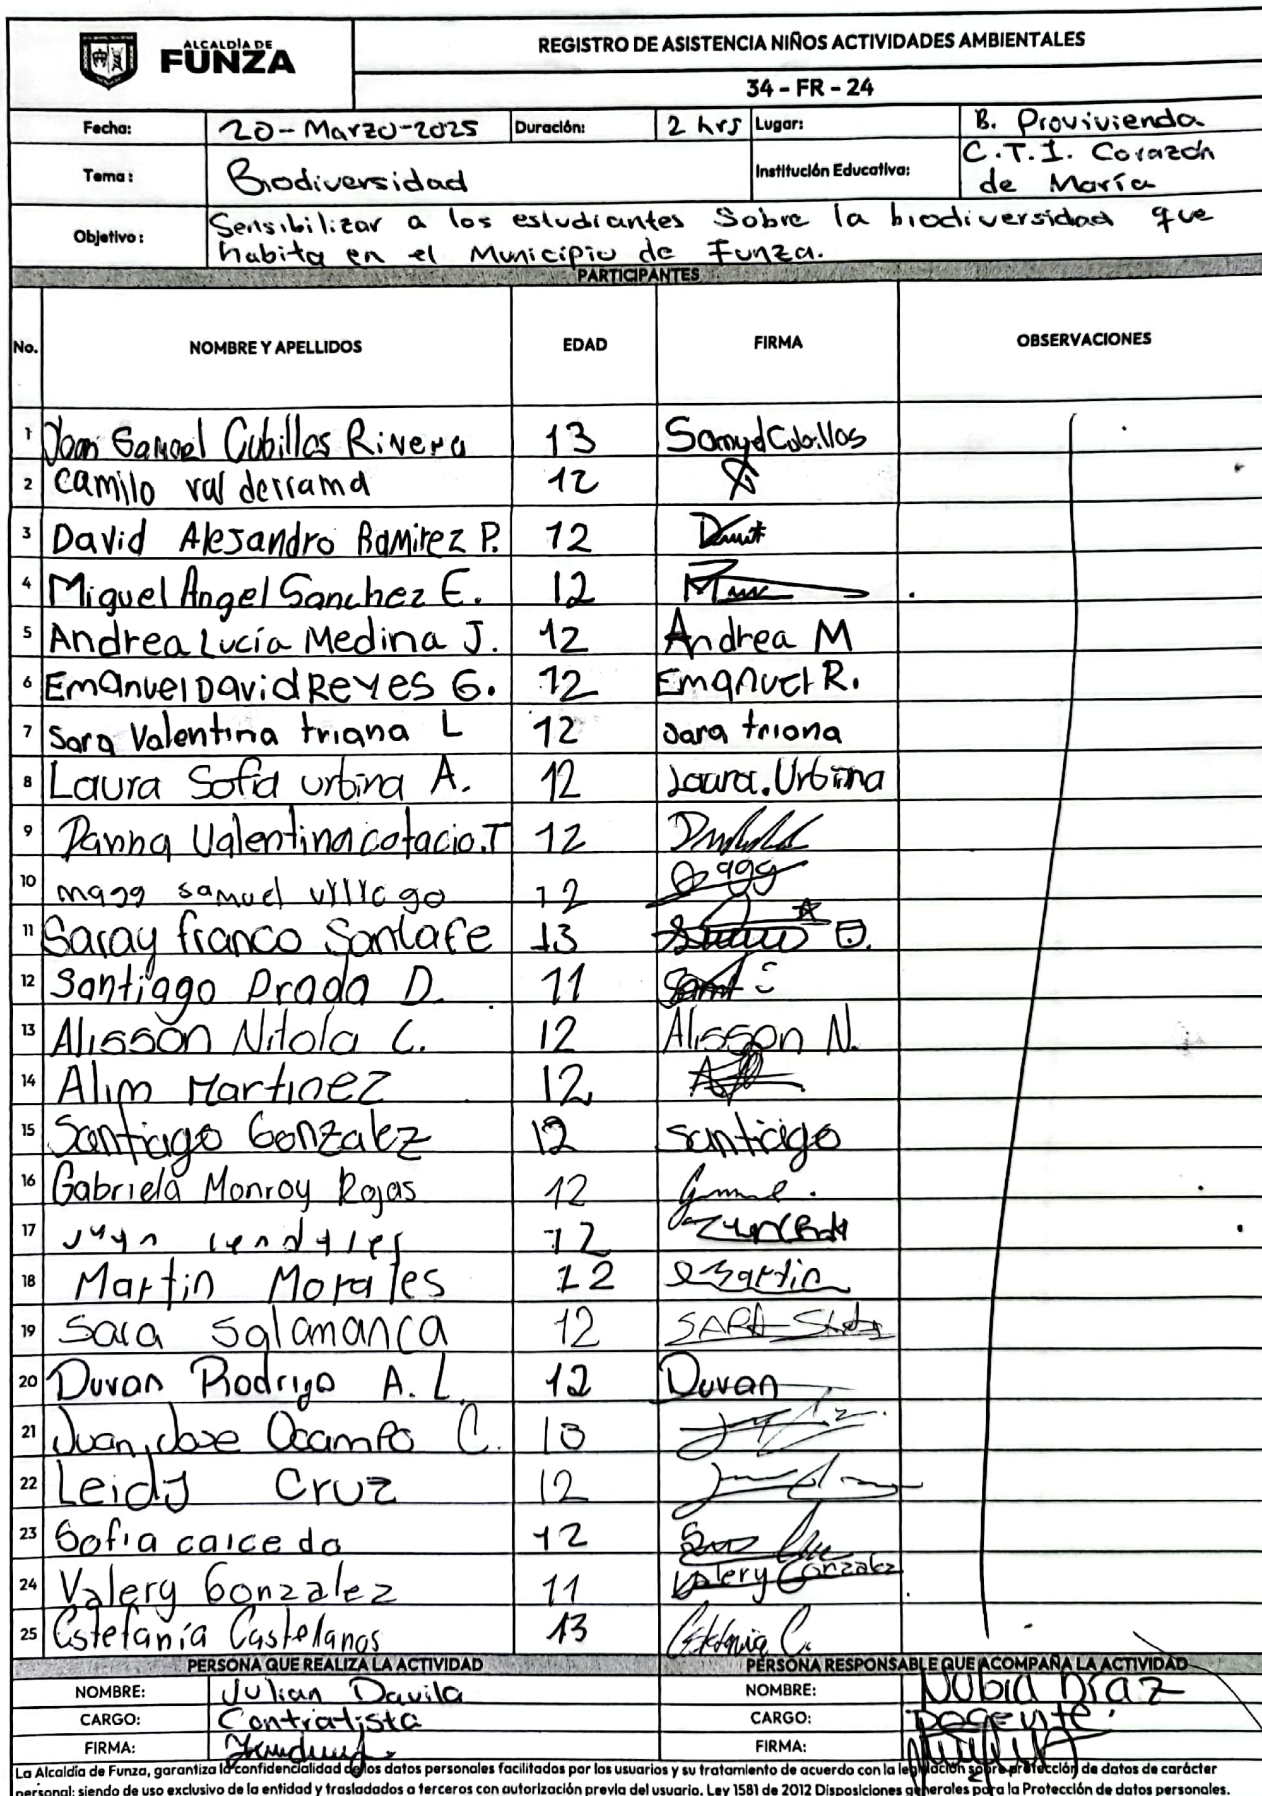 ALCALDÍA DE
FUNZA
REGISTRO DE ASISTENCIA NIÑOS ACTIVIDADES AMBIENTALES
34 - FR - 24
Fecha: 20-Marzo-2025 Duración: 2 hrs Lugar: B. Provivienda
Tema: Biodiversidad Institución Educativa: C.T.I. Corazón
de María
Objetivo: Sensibilizar a los estudiantes Sobre la biodiversidad que
habita en el Municipio de Funza.
PARTICIPANTES
No. NOMBRE Y APELLIDOS EDAD FIRMA OBSERVACIONES
1 Joan Samuel Cubillos Rivera 13 Samuel Cubillos
2 camilo valderrama 12
3 David Alejandro Ramirez P. 12
4 Miguel Angel Sanchez E. 12
5 Andrea Lucía Medina J. 12 Andrea M
6 Emanuel David Reyes G. 12 Emanuel R.
7 Sara Valentina triana L 12 sara triana
8 Laura Sofia urbina A. 12 Laura. Urbina
9 Danna Valentina cotacio.T 12
10 samuel 12
11 Saray franco Santafe 13
12 Santiago Prada D. 11
13 Alisson Nitola C. 12 Alisson N.
14 Alim Martinez 12
15 Santiago Gonzalez 12 santiago
16 Gabriela Monroy Rojas 12
17 juan 12
18 Martin Morales 12 Martin
19 Sara Salamanca 12 SARA
20 Duvan Rodrigo A. L 12 Duvan
21 Juan Jose Ocampo C. 13
22 Leidy Cruz 12
23 Sofia caicedo 12
24 Valery Gonzalez 11 Valery Gonzalez
25 Estefanía Castellanos 13 Estefania C.
PERSONA QUE REALIZA LA ACTIVIDAD PERSONA RESPONSABLE QUE ACOMPAÑA LA ACTIVIDAD
NOMBRE: Julian Davila NOMBRE: Nubia Díaz
CARGO: Contratista CARGO: Docente.
FIRMA: FIRMA:
La Alcaldía de Funza, garantiza la confidencialidad de los datos personales facilitados por los usuarios y su tratamiento de acuerdo con la legislación sobre protección de datos de carácter
personal; siendo de uso exclusivo de la entidad y trasladados a terceros con autorización previa del usuario. Ley 1581 de 2012 Disposiciones generales para la Protección de datos personales.